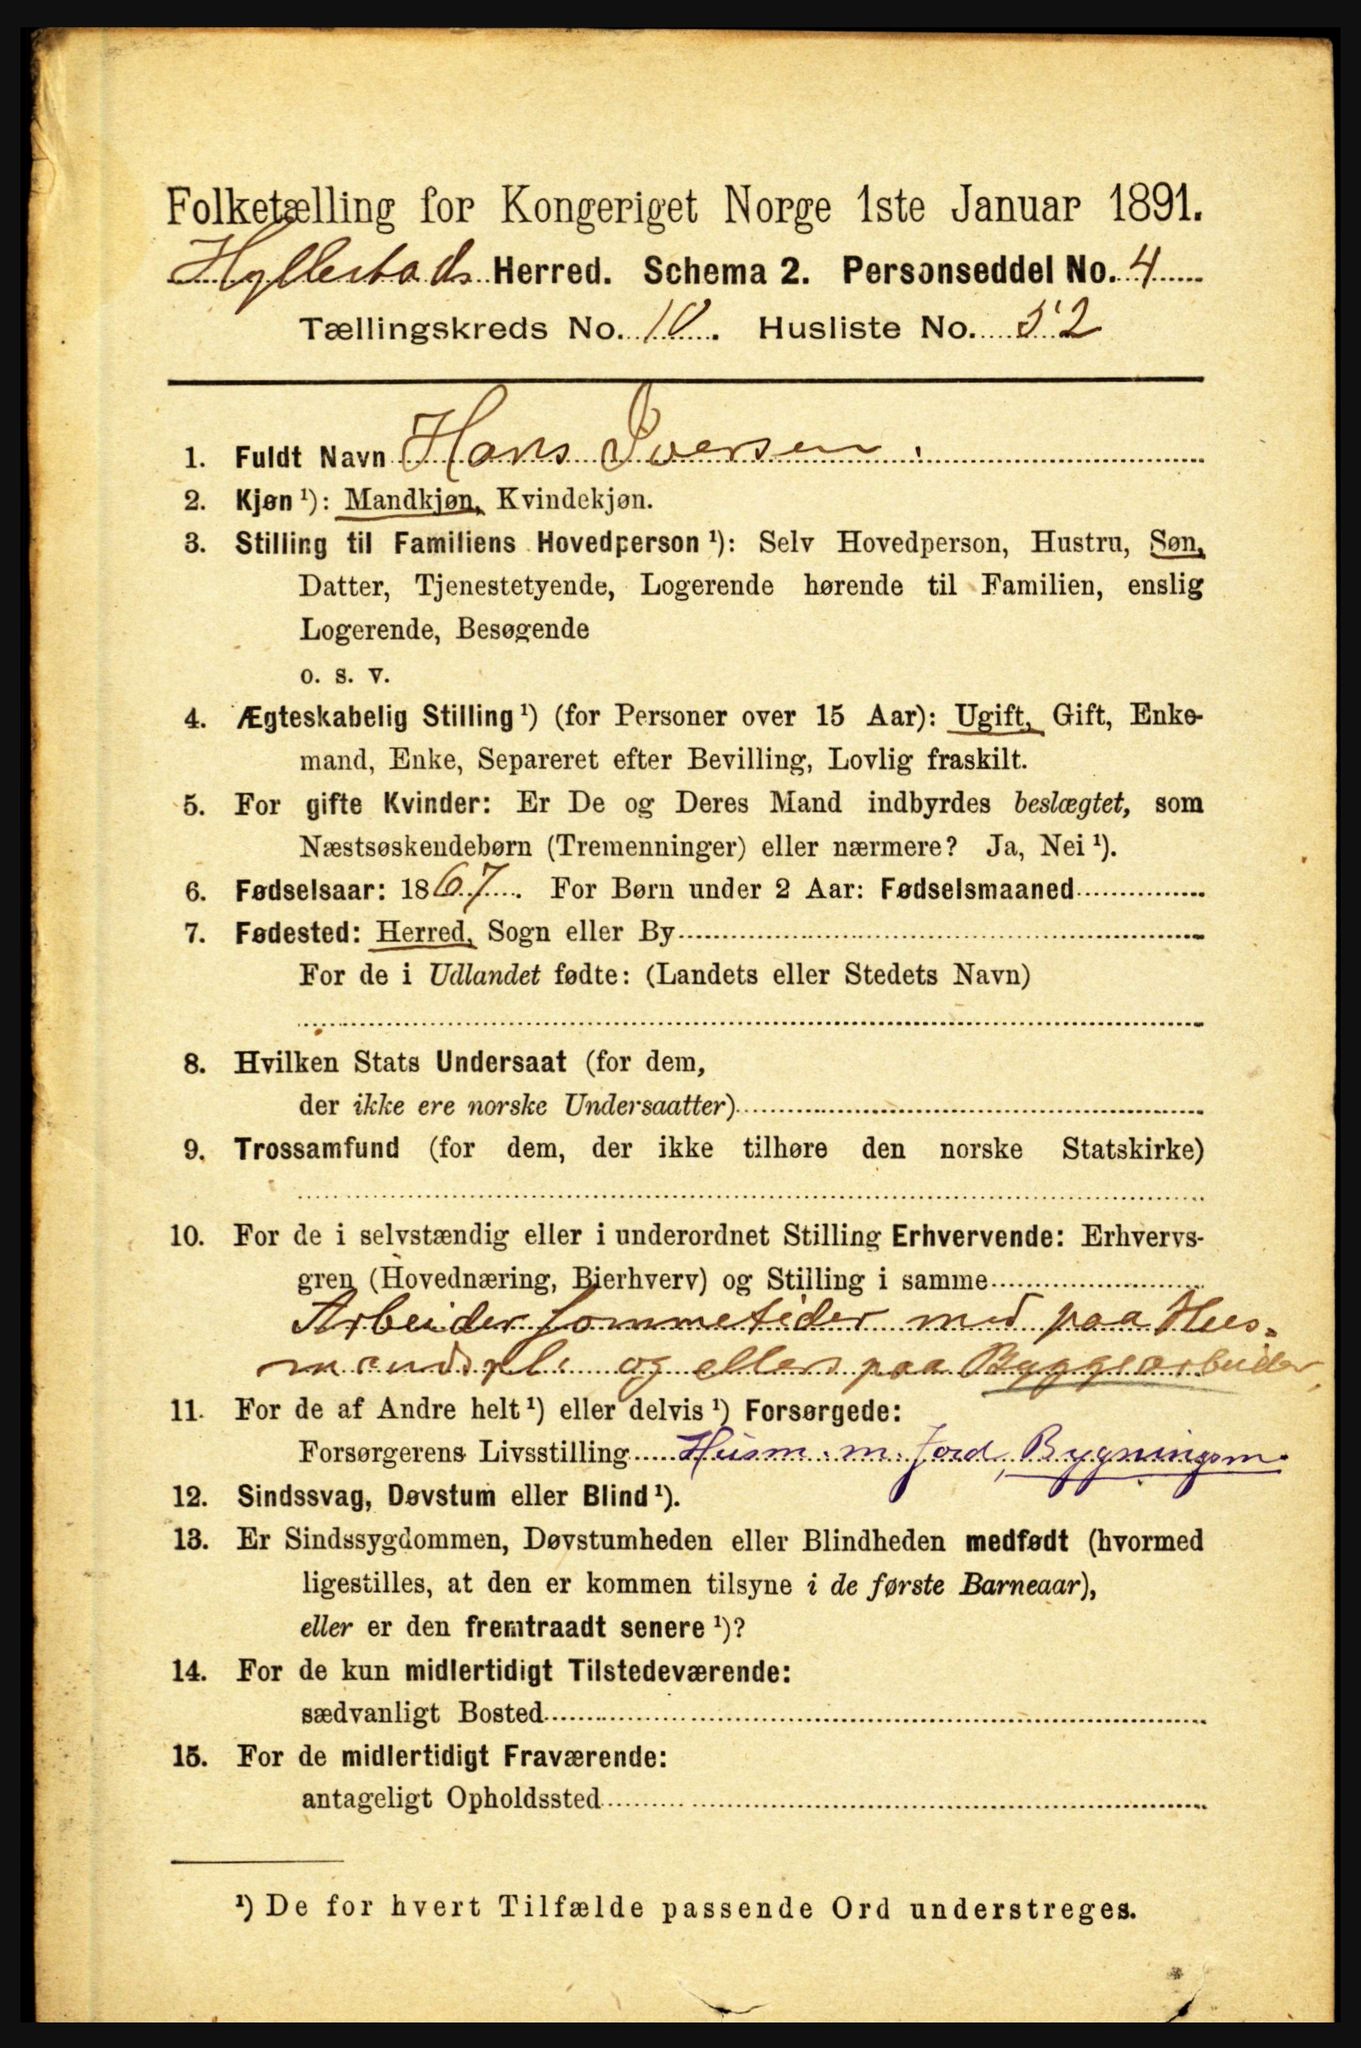 Folketælling for Kongeriget Norge 1ste Januar 1891.
Hyllestads Herred. Schema 2. Personseddel No. 4
Tællingskreds No. 10. Husliste No. 52
1. Fuldt Navn Hans Iversen.
2. Kjøn¹): Mandkjøn, Kvindekjøn.
3. Stilling til Familiens Hovedperson¹): Selv Hovedperson, Hustru, Søn,
Datter, Tjenestetyende, Logerende hørende til Familien, enslig
Logerende, Besøgende
o. s. v.
4. Ægteskabelig Stilling¹) (for Personer over 15 Aar): Ugift, Gift, Enke-
mand, Enke, Separeret efter Bevilling, Lovlig fraskilt.
5. For gifte Kvinder: Er De og Deres Mand indbyrdes beslægtet, som
Næstsøskendebørn (Tremenninger) eller nærmere? Ja, Nei¹).
6. Fødselsaar: 1867. For Børn under 2 Aar: Fødselsmaaned
7. Fødested: Herred, Sogn eller By
For de i Udlandet fødte: (Landets eller Stedets Navn)
8. Hvilken Stats Undersaat (for dem,
der ikke ere norske Undersaatter)
9. Trossamfund (for dem, der ikke tilhøre den norske Statskirke)
10. For de i selvstændig eller i underordnet Stilling Erhvervende: Erhvervs-
gren (Hovednæring, Bierhverv) og Stilling i samme
Arbeider sommetider med paa Hus-
mandspl. og ellers paa Byggearbeider
11. For de af Andre helt¹) eller delvis¹) Forsørgede:
Forsørgerens Livsstilling Husm. m. Jord, Bygningsm.
12. Sindssvag, Døvstum eller Blind¹).
13. Er Sindssygdommen, Døvstumheden eller Blindheden medfødt (hvormed
ligestilles, at den er kommen tilsyne i de første Barneaar),
eller er den fremtraadt senere¹)?
14. For de kun midlertidigt Tilstedeværende:
sædvanligt Bosted
15. For de midlertidigt Fraværende:
antageligt Opholdssted
¹) De for hvert Tilfælde passende Ord understreges.